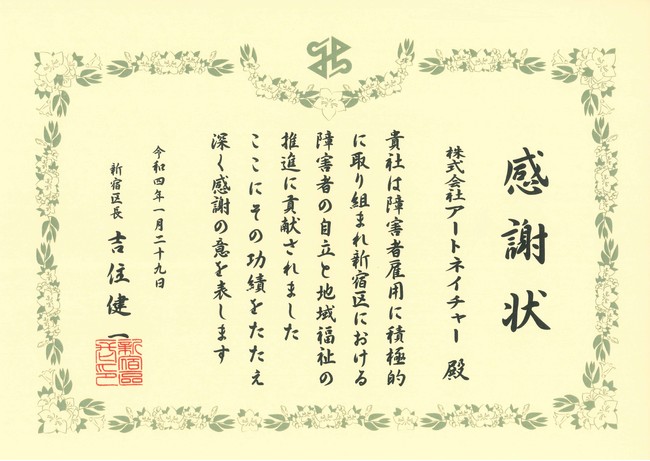 感謝状
株式会社アートネイチャー 殿
貴社は障害者雇用に積極的
に取り組まれ新宿区における
障害者の自立と地域福祉の
推進に貢献されました
ここにその功績をたたえ
深く感謝の意を表します
令和四年一月二十九日
新宿区長 吉住健一